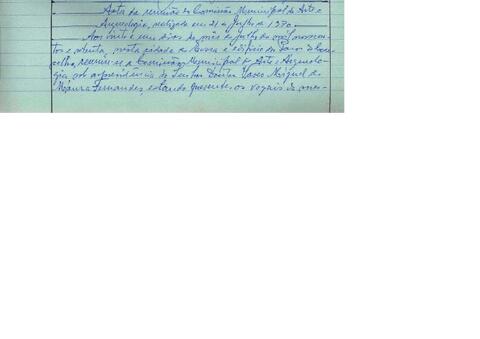 Acta da reunião da Comissão Municipal de Arte e
Arqueologia, realizada em 21 de Julho de 1970.
Aos vinte e um dias do mês de Julho de mil novecen-
tos e setenta, nesta cidade de e edifício dos Paços do Con-
celho, reuniu-se a Comissão Municipal de Arte e Arqueolo-
gia sob a presidência do Senhor Doutor Vasco Miguel de
Moura Fernandes, estando presentes os vogais da mes-